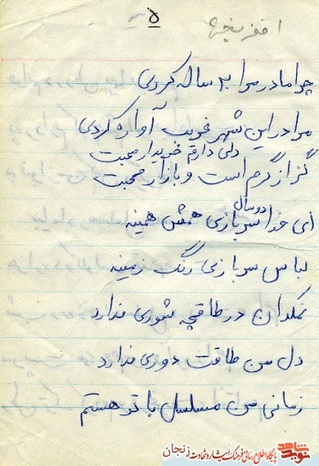 ۵
چرا مادر مرا ۲۰ ساله کردی
مرا در این شهر غریب آواره کردی
دلی دارم خریدار محبت
کز او گرم است و بازار محبت
ای خدا دو سال سربازی همش همینه
لباس سربازی رنگ زمینه
نمکدان در طاقچه شوری ندارد
دل من طاقت دوری ندارد
زمانی من مسلسل با تو هستم
نوید شاهد
پایگاه اطلاع رسانی فرهنگ ایثار و شهادت زنجان